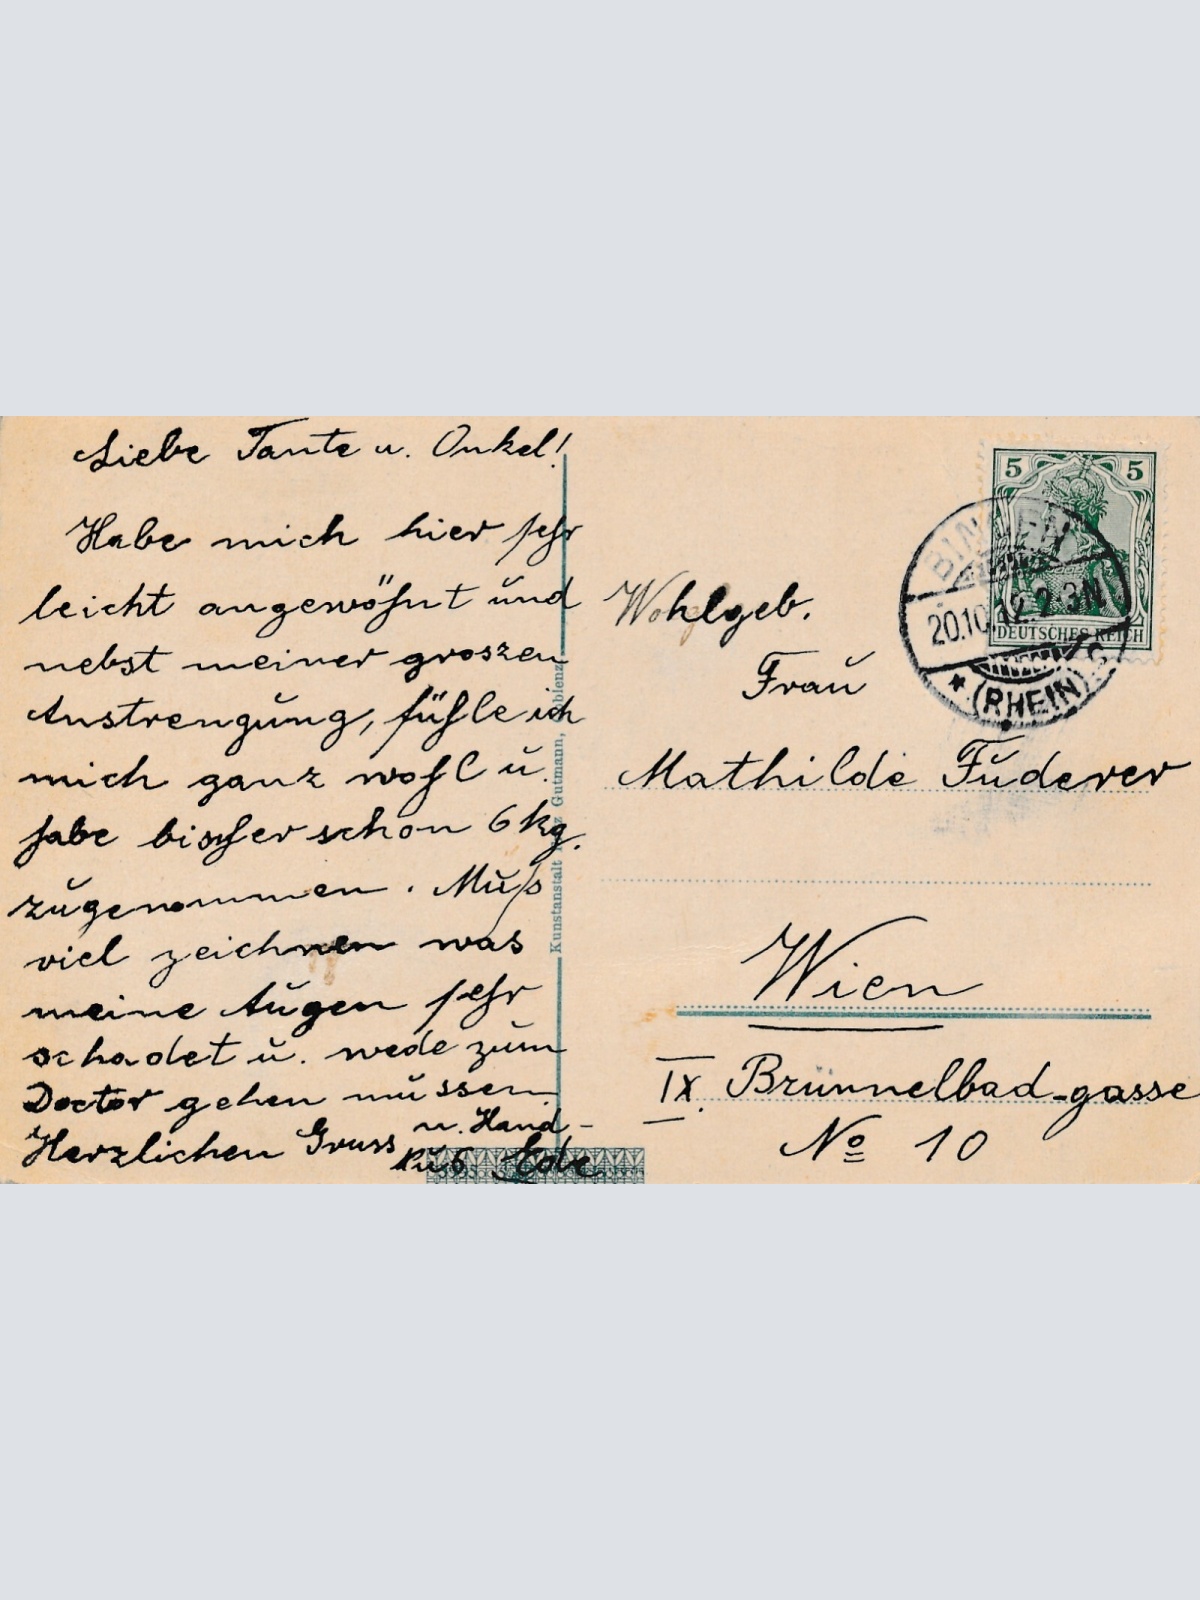 Liebe Tante u. Onkel!
Habe mich hier sehr
leicht angewöhnt und
nebst meiner groszen
Anstrengung, fühle ich
mich ganz wohl u.
habe bischer schon 6 kg.
zugenommen. Muß
viel zeichnen was
meine Augen sehr
schadet u. wede zum
Doctor gehen müssen.
Herzlichen Gruss u. Hand-
kuß
Kunstanstalt Gutmann,
5 5
DEUTSCHES REICH
BINGEN
20.10.12. 2-3N
* (RHEIN) c
Wohlgeb.
Frau
Mathilde Fuderer
Wien
IX. Brünnelbad-gasse
No 10